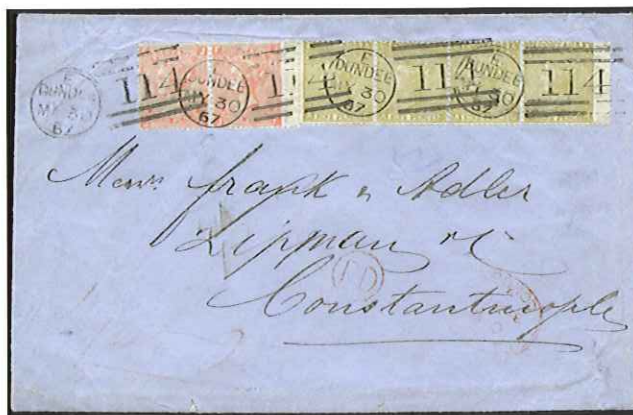 E
DUNDEE
MY 30
67
114
E
DUNDEE
MY 30
67
114
E
DUNDEE
MY 30
67
114
E
DUNDEE
MY 30
67
114
Messrs Frank & Adler
Lipman &c
Constantinople
PD